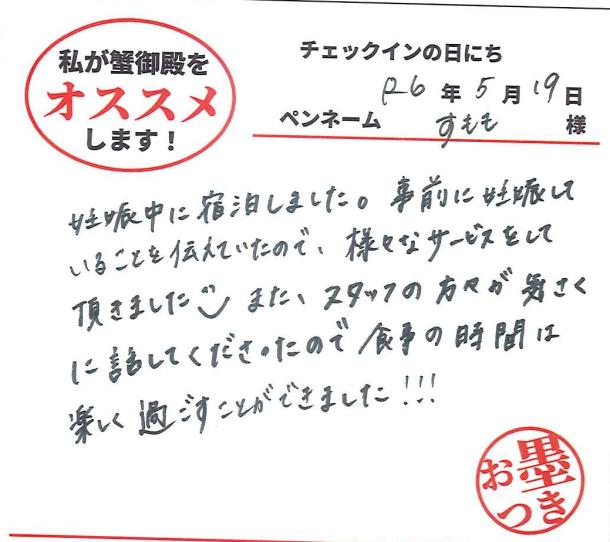 私が蟹御殿を
オススメ
します！
チェックインの日にち
R6年5月19日
ペンネーム すもも 様
妊娠中に宿泊しました。事前に妊娠して
いることを伝えていたので、様々なサービスをして
頂きました また、スタッフの方々が気さく
に話してくださったので食事の時間は
楽しく過ごすことができました!!!
お墨
つき